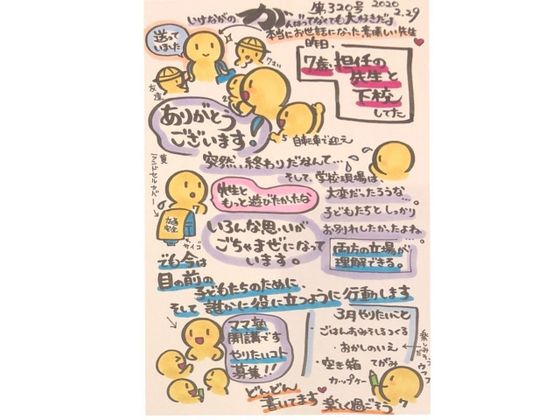 いけながの がんばってなくても大好きだよ
第320号 2020 2.29
本当にお世話になった素晴しい先生
送って
いました
昨日、
7歳、担任の
先生と
下校
してた
友達
7さい
ありがとう
ございます!
自転車で迎え
突然、終わりだなんて…
そして、学校現場は、
大変だったろうな…
先生と
もっと遊びたかったな
子どもたちと しっかり
お別れしたかったよね…
いろんな思いが
ごちゃまぜになって
います。
両方の立場が
理解できる。
サイコ
でも今は
目の前の
子どもたちのために
そして 誰かに役に立つように 行動します
ママ塾
開講です
やりたいコト
募集!!
3月やりたいこと
ごはんおみそしるつくる
・おかしのいえ
・空き箱 てがみ
カップケーキ
どんどん
書いてます
楽しく過ごそう